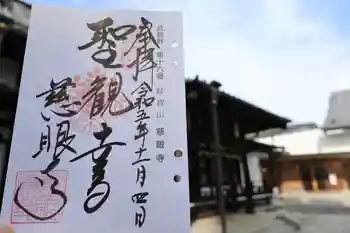 武蔵野 第十八番 妙祝山 慈眼寺
奉拝 令和五年十一月四日
聖観音
慈眼寺